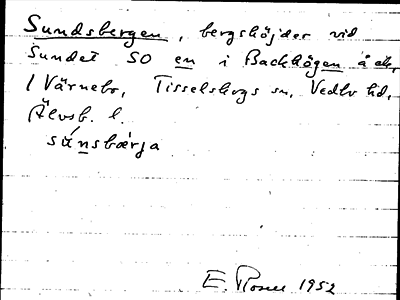 Sundsbergen, bergshöjder vid
Sundet SO en i Backhögen å ek.
1 Värnebo, Tisselskogs sn, Vedbo hd,
Älvsb. l.
súnsbærja
E. Rosell 1952